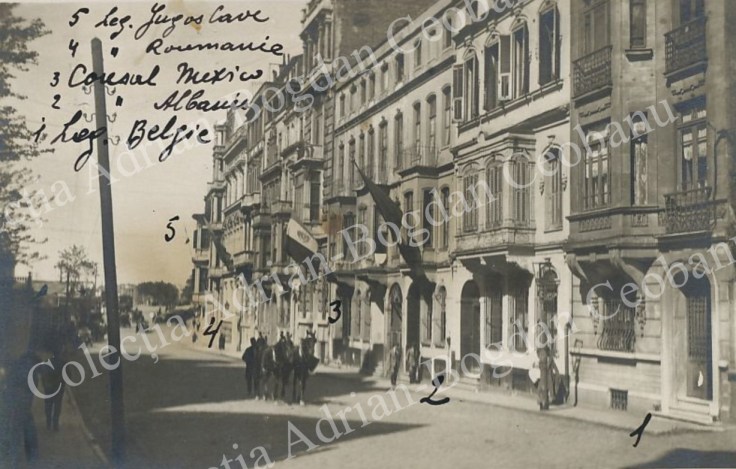 5 Leg. Jugoslave
4 " Roumanie
3 Consul Mexico
2 " Albanie
1 Leg. Belgie
5
4
3
2
1
Colecția Adrian Bogdan Ceobanu
Colecția Adrian Bogdan Ceobanu
Colecția Adrian Bogdan Ceobanu